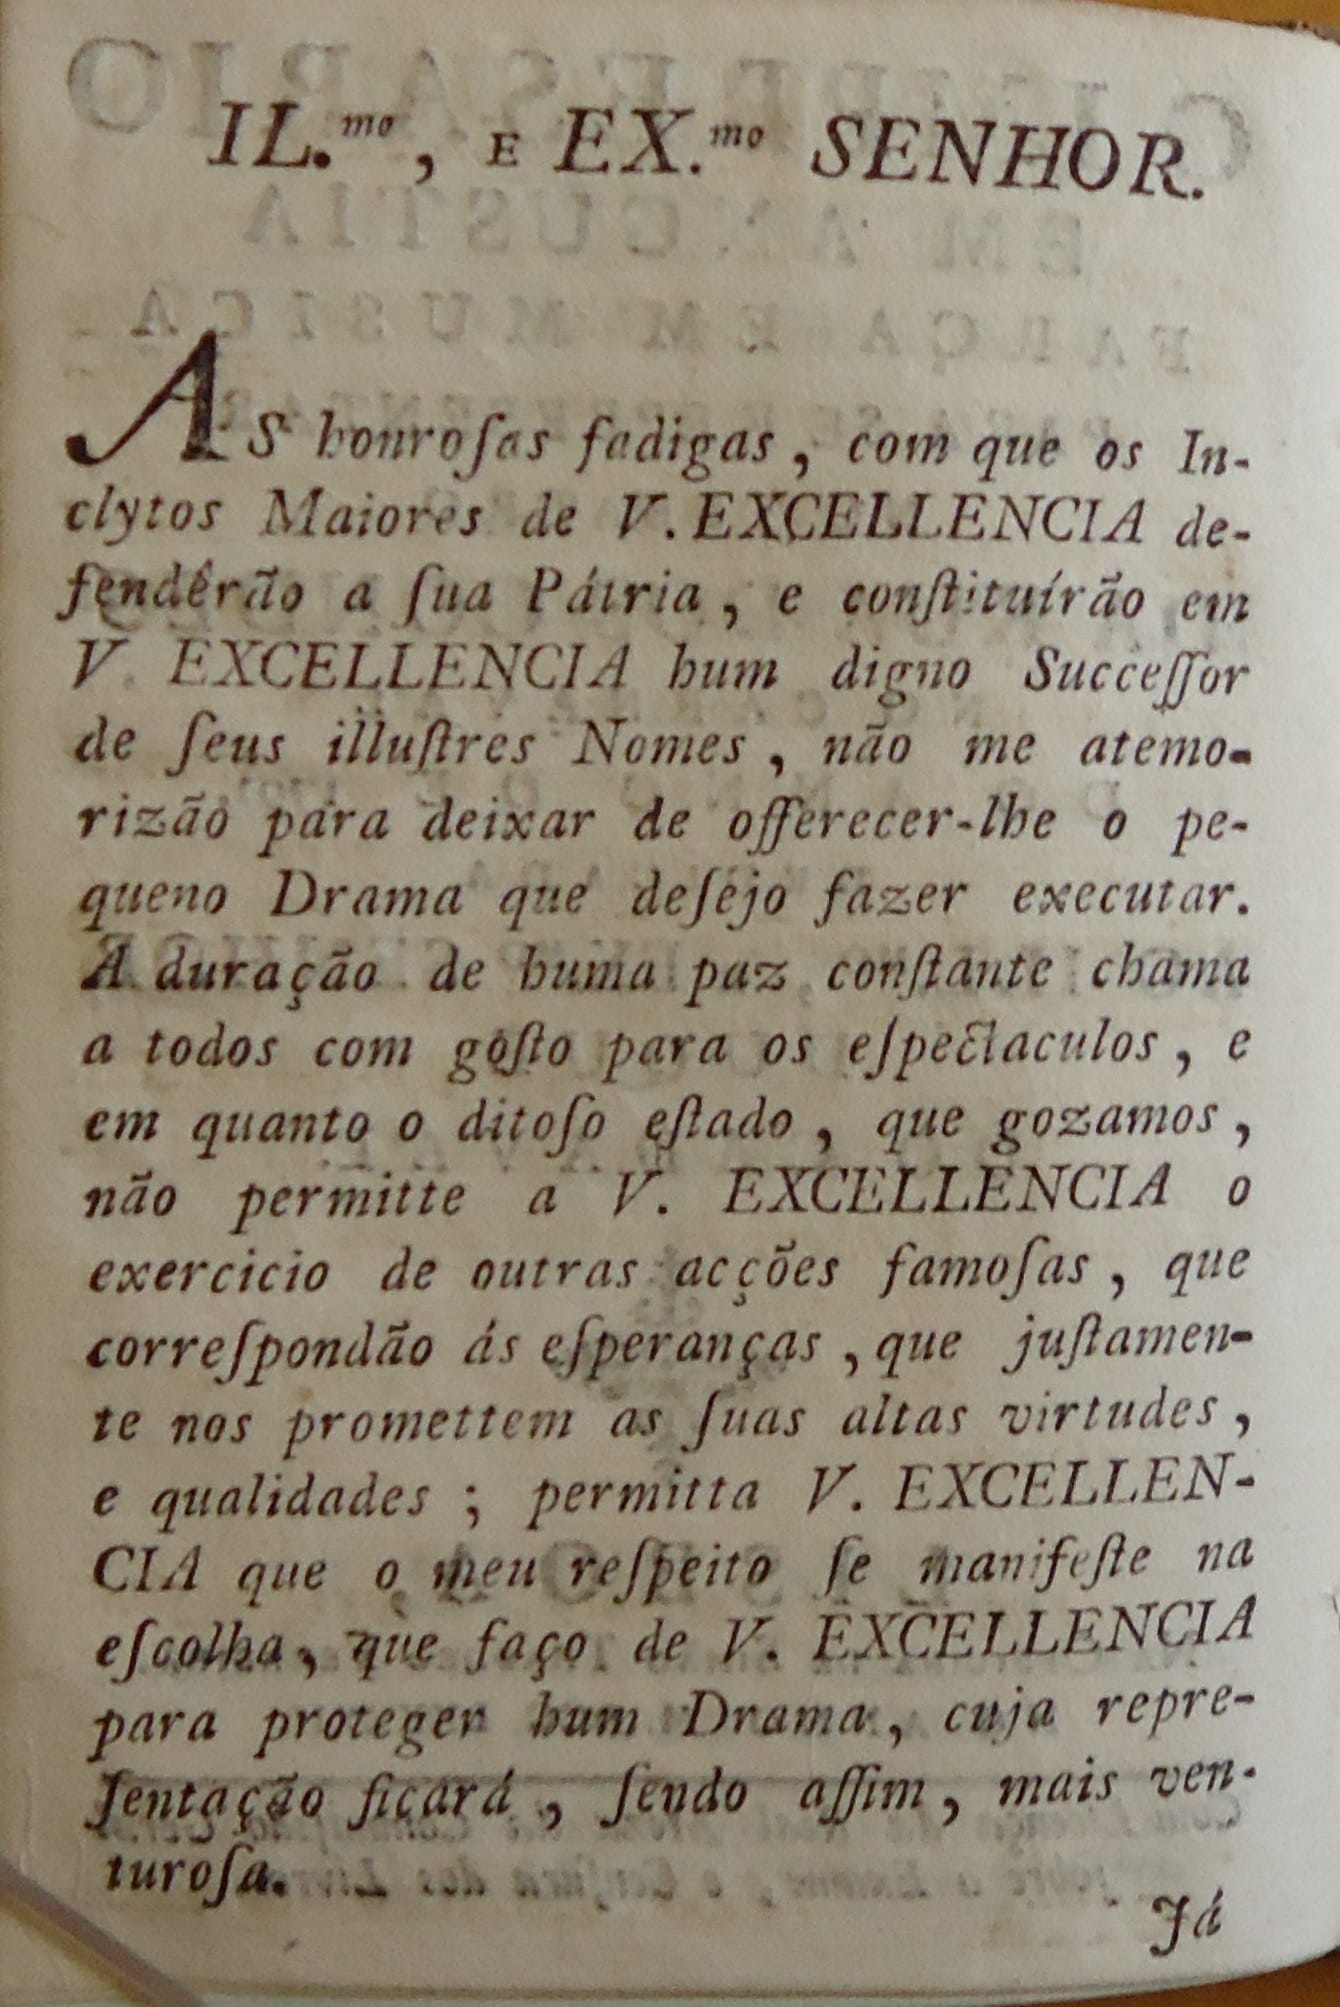 IL.mo, E EX.mo SENHOR.
AS honroſas fadigas, com que os In-
clytos Maiores de V. EXCELLENCIA de-
fendêrão a ſua Pátria, e conſtituírão em
V. EXCELLENCIA hum digno Succeſſor
de ſeus illuſtres Nomes, não me atemo-
rizão para deixar de offerecer-lhe o pe-
queno Drama que deſejo fazer executar.
A duração de huma paz conſtante chama
a todos com gôſto para os eſpectaculos, e
em quanto o ditoſo eſtado, que gozamos,
não permitte a V. EXCELLENCIA o
exercicio de outras acções famoſas, que
correſpondão ás eſperanças, que juſtamen-
te nos promettem as ſuas altas virtudes,
e qualidades; permitta V. EXCELLEN-
CIA que o meu reſpeito ſe manifeſte na
eſcolha, que faço de V. EXCELLENCIA
para proteger hum Drama, cuja repre-
ſentação ficará, ſendo aſſim, mais ven-
turoſa.
Já